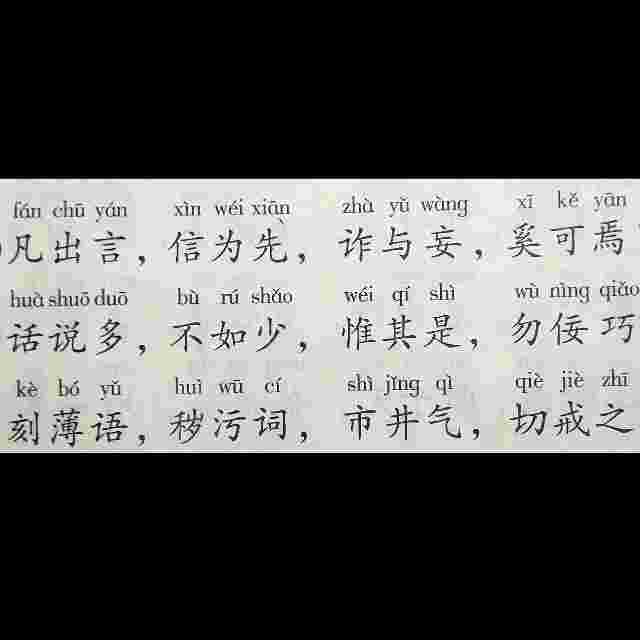 fán chū yán xìn wéi xiān zhà yǔ wàng xī kě yān
凡出言，信为先，诈与妄，奚可焉
huà shuō duō bù rú shǎo wéi qí shì wù nìng qiǎo
话说多，不如少，惟其是，勿佞巧
kè bó yǔ huì wū cí shì jǐng qì qiè jiè zhī
刻薄语，秽污词，市井气，切戒之